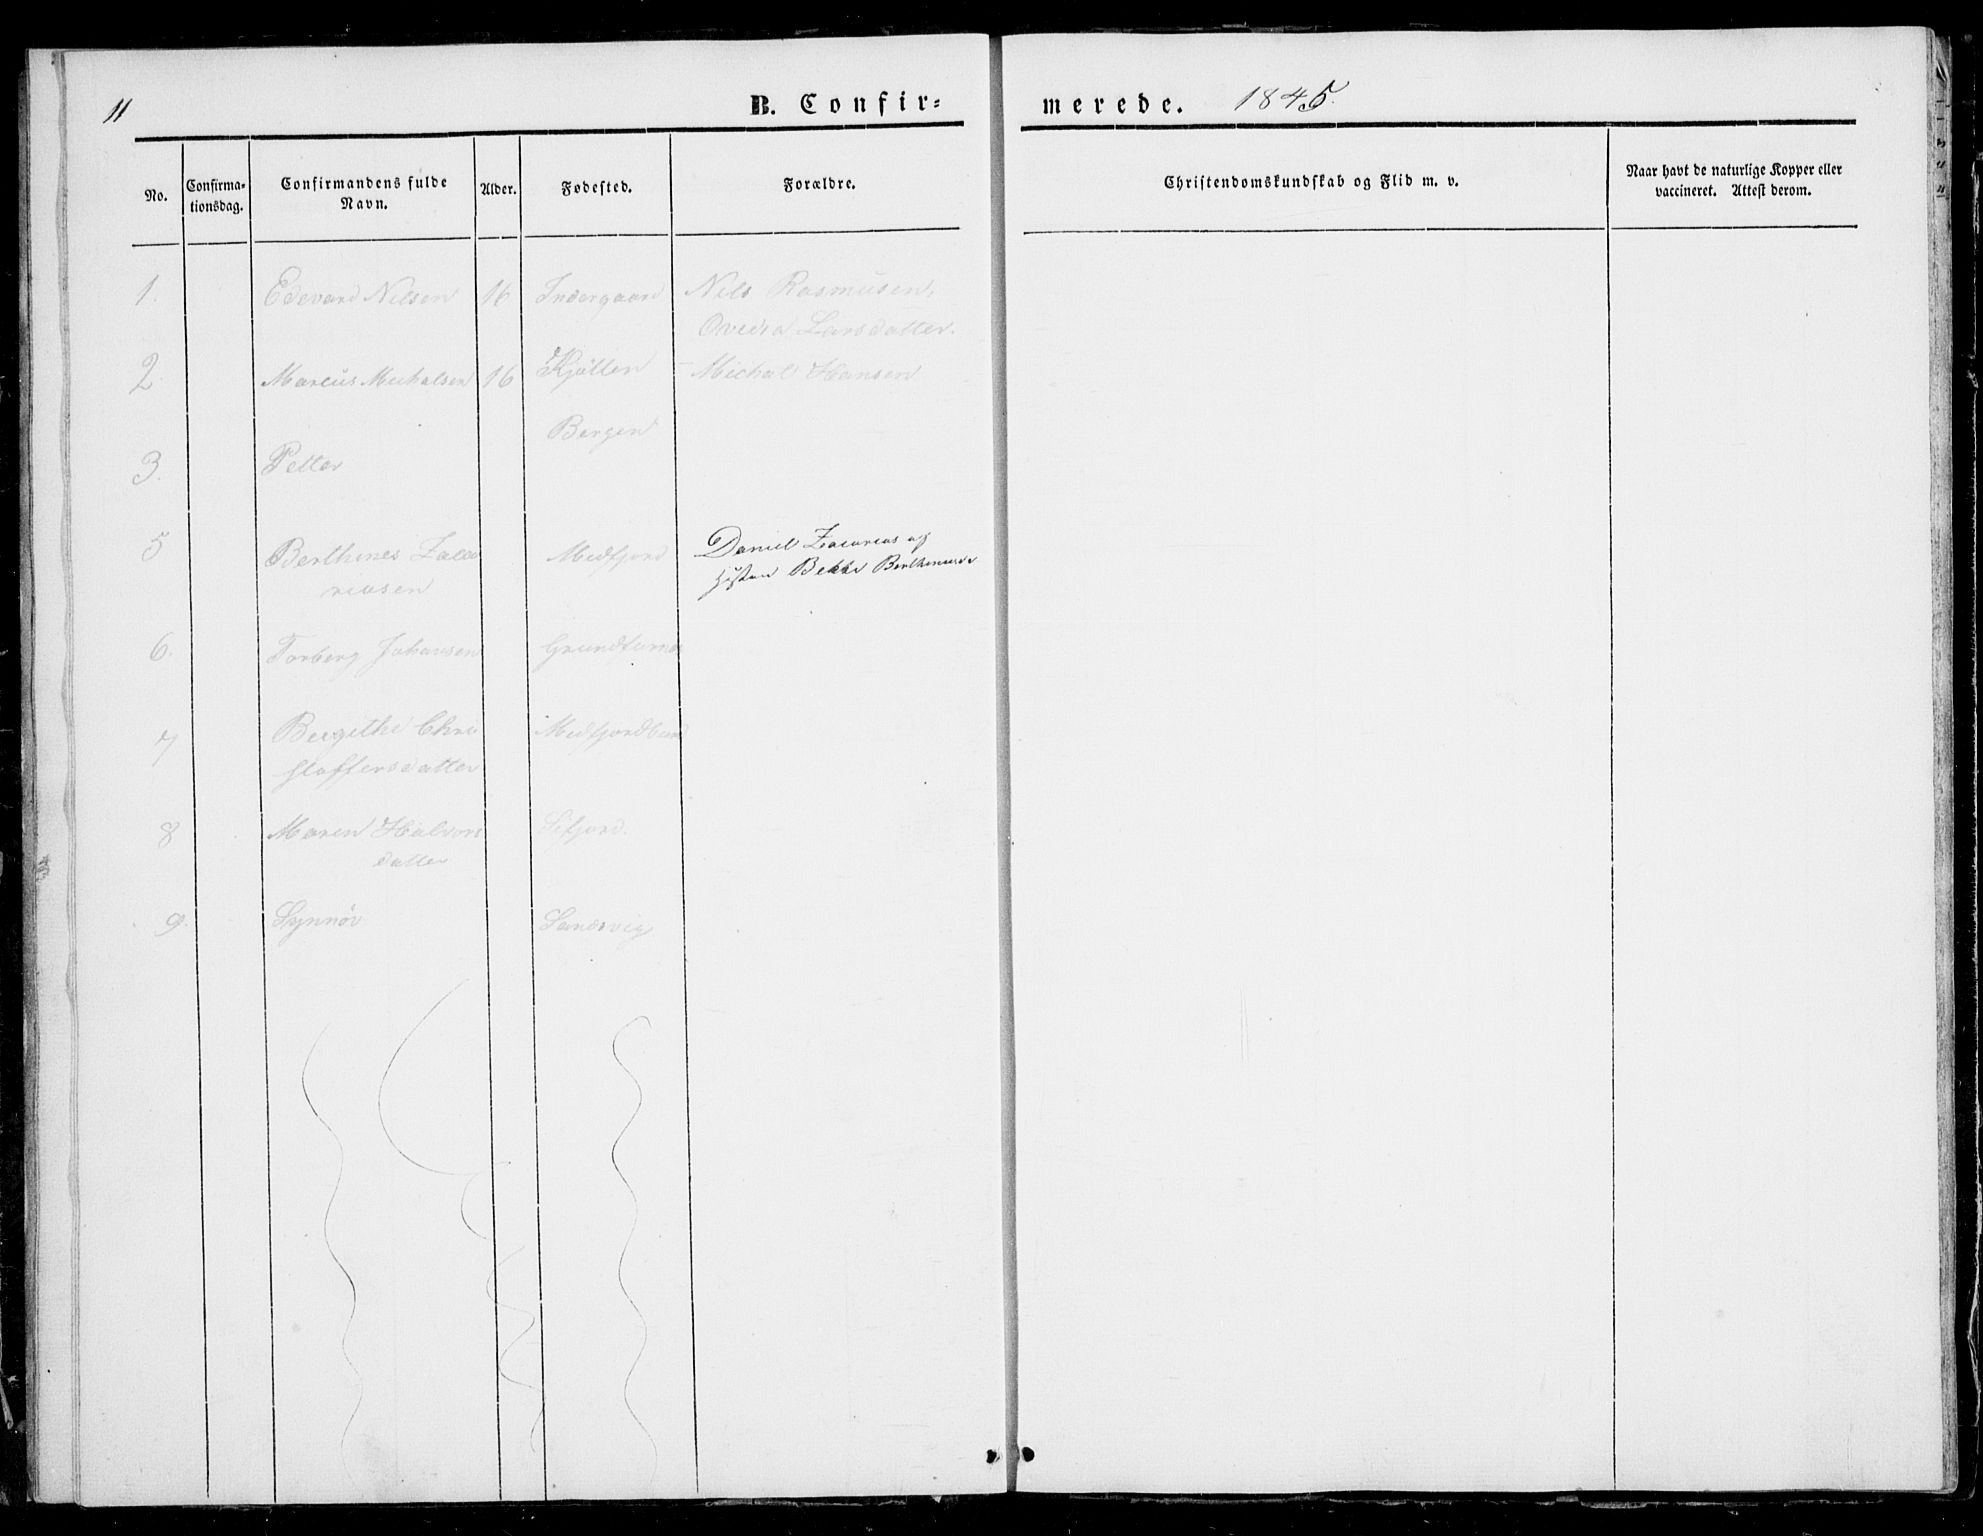 11
B. Confir=
merede. 1845.
No.
Confirma-
tionsdag.
Confirmandens fulde
Navn.
Alder.
Fødested.
Forældre.
Christendomskundskab og Flid m. v.
Naar havt de naturlige Kopper eller
vaccineret. Attest derom.
1. Edevard Nilsen 16 Indergaard Nils Rasmusen,
Ovedia Larsdatter.
2. Marcus Michalsen 16 Kjölten Michal Hansen
Bergen
3. Petter
5 Berthines Zaca Medfjord Daniel Zacarias og
riasen Hustru Berthe
6. Torberg Johansen
7 Bergithe Chri Medfjordbund
stoffersdatter
8 Maren Halvors Sifjord.
datter
9. Synnöv Sandsvig